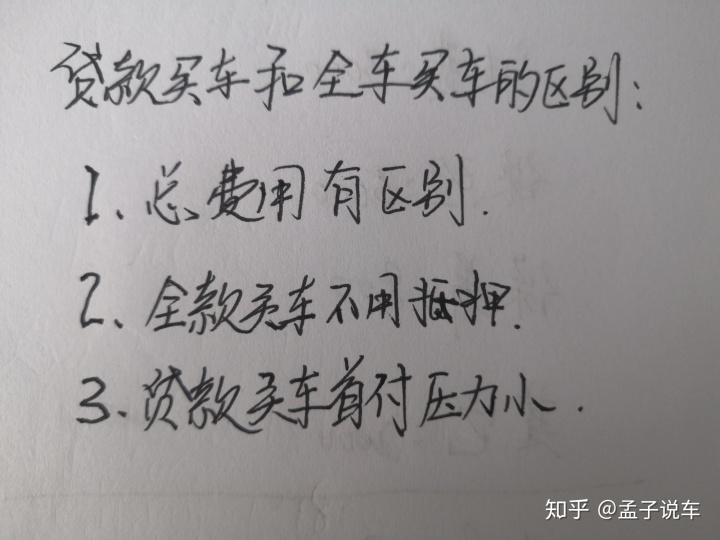 贷款买车和全车买车的区别：
1、总费用有区别.
2、全款买车不用抵押.
3.贷款买车首付压力小.
知乎 @孟子说车